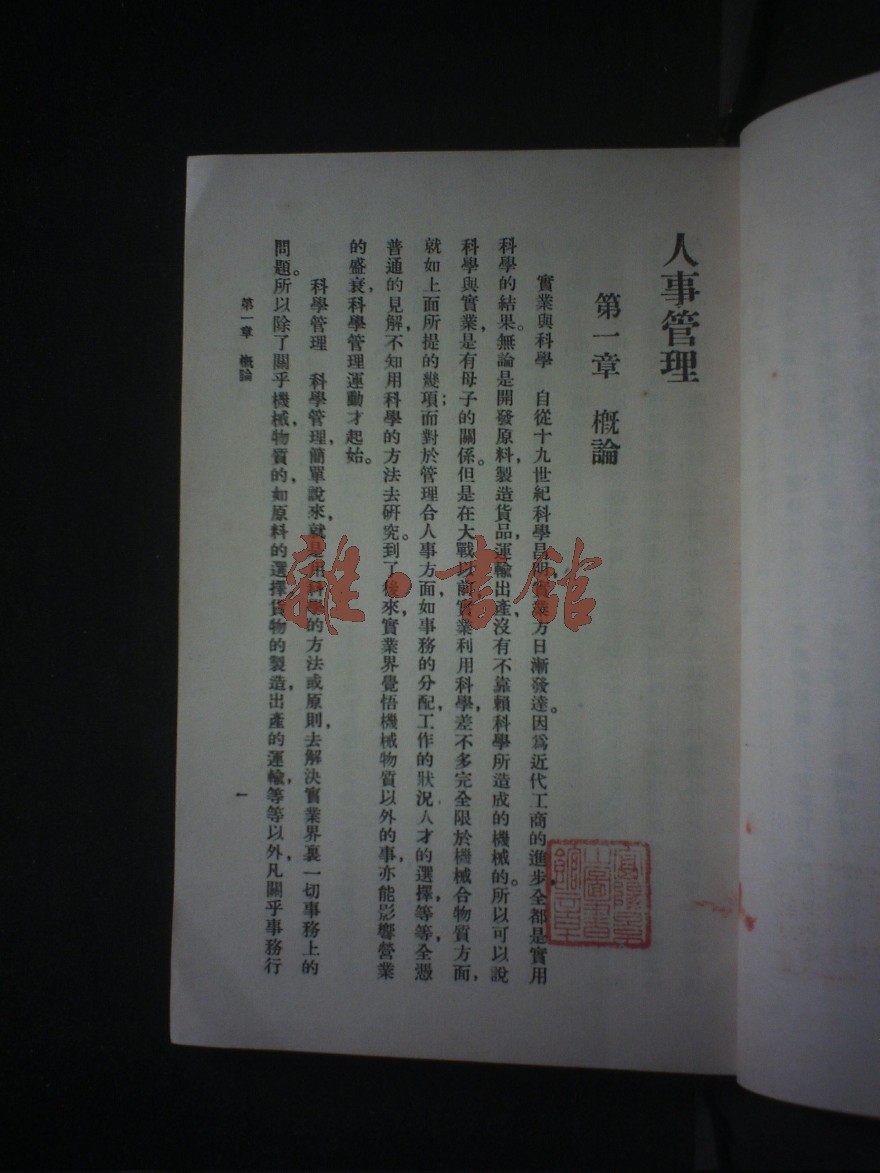 人事管理
第一章 概論
實業與科學 自從十九世紀科學昌明,實業方日漸發達。因爲近代工商的進步,全都是實用
科學的結果。無論是開發原料,製造貨品,運輸出產,沒有不靠賴科學所造成的機械的。所以可以說
科學與實業,是有母子的關係。但是在大戰以前,實業利用科學,差不多完全限於機械合物質方面,
就如上面所提的幾項;而對於管理合人事方面,如事務的分配,工作的狀況,人才的選擇,等等,全憑
普通的見解,不知用科學的方法去研究。到了後來,實業界覺悟機械物質以外的事,亦能影響營業
的盛衰,科學管理運動才起始。
科學管理 科學管理,簡單說來,就是用科學的方法或原則,去解決實業界裏一切事務上的
問題。所以除了關乎機械,物質的,如原料的選擇,貨物的製造,出產的運輸,等等以外,凡關乎事務行
第一章 概論
一
雜·書館